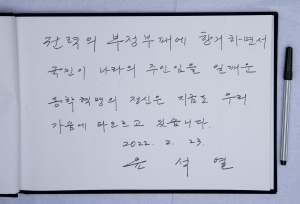 권력의 부정부패에 항거하면서
국민이 나라의 주인임을 일깨운
동학혁명의 정신은 지금도 우리
가슴에 타오르고 있습니다.
2022. 2. 23.
윤석열